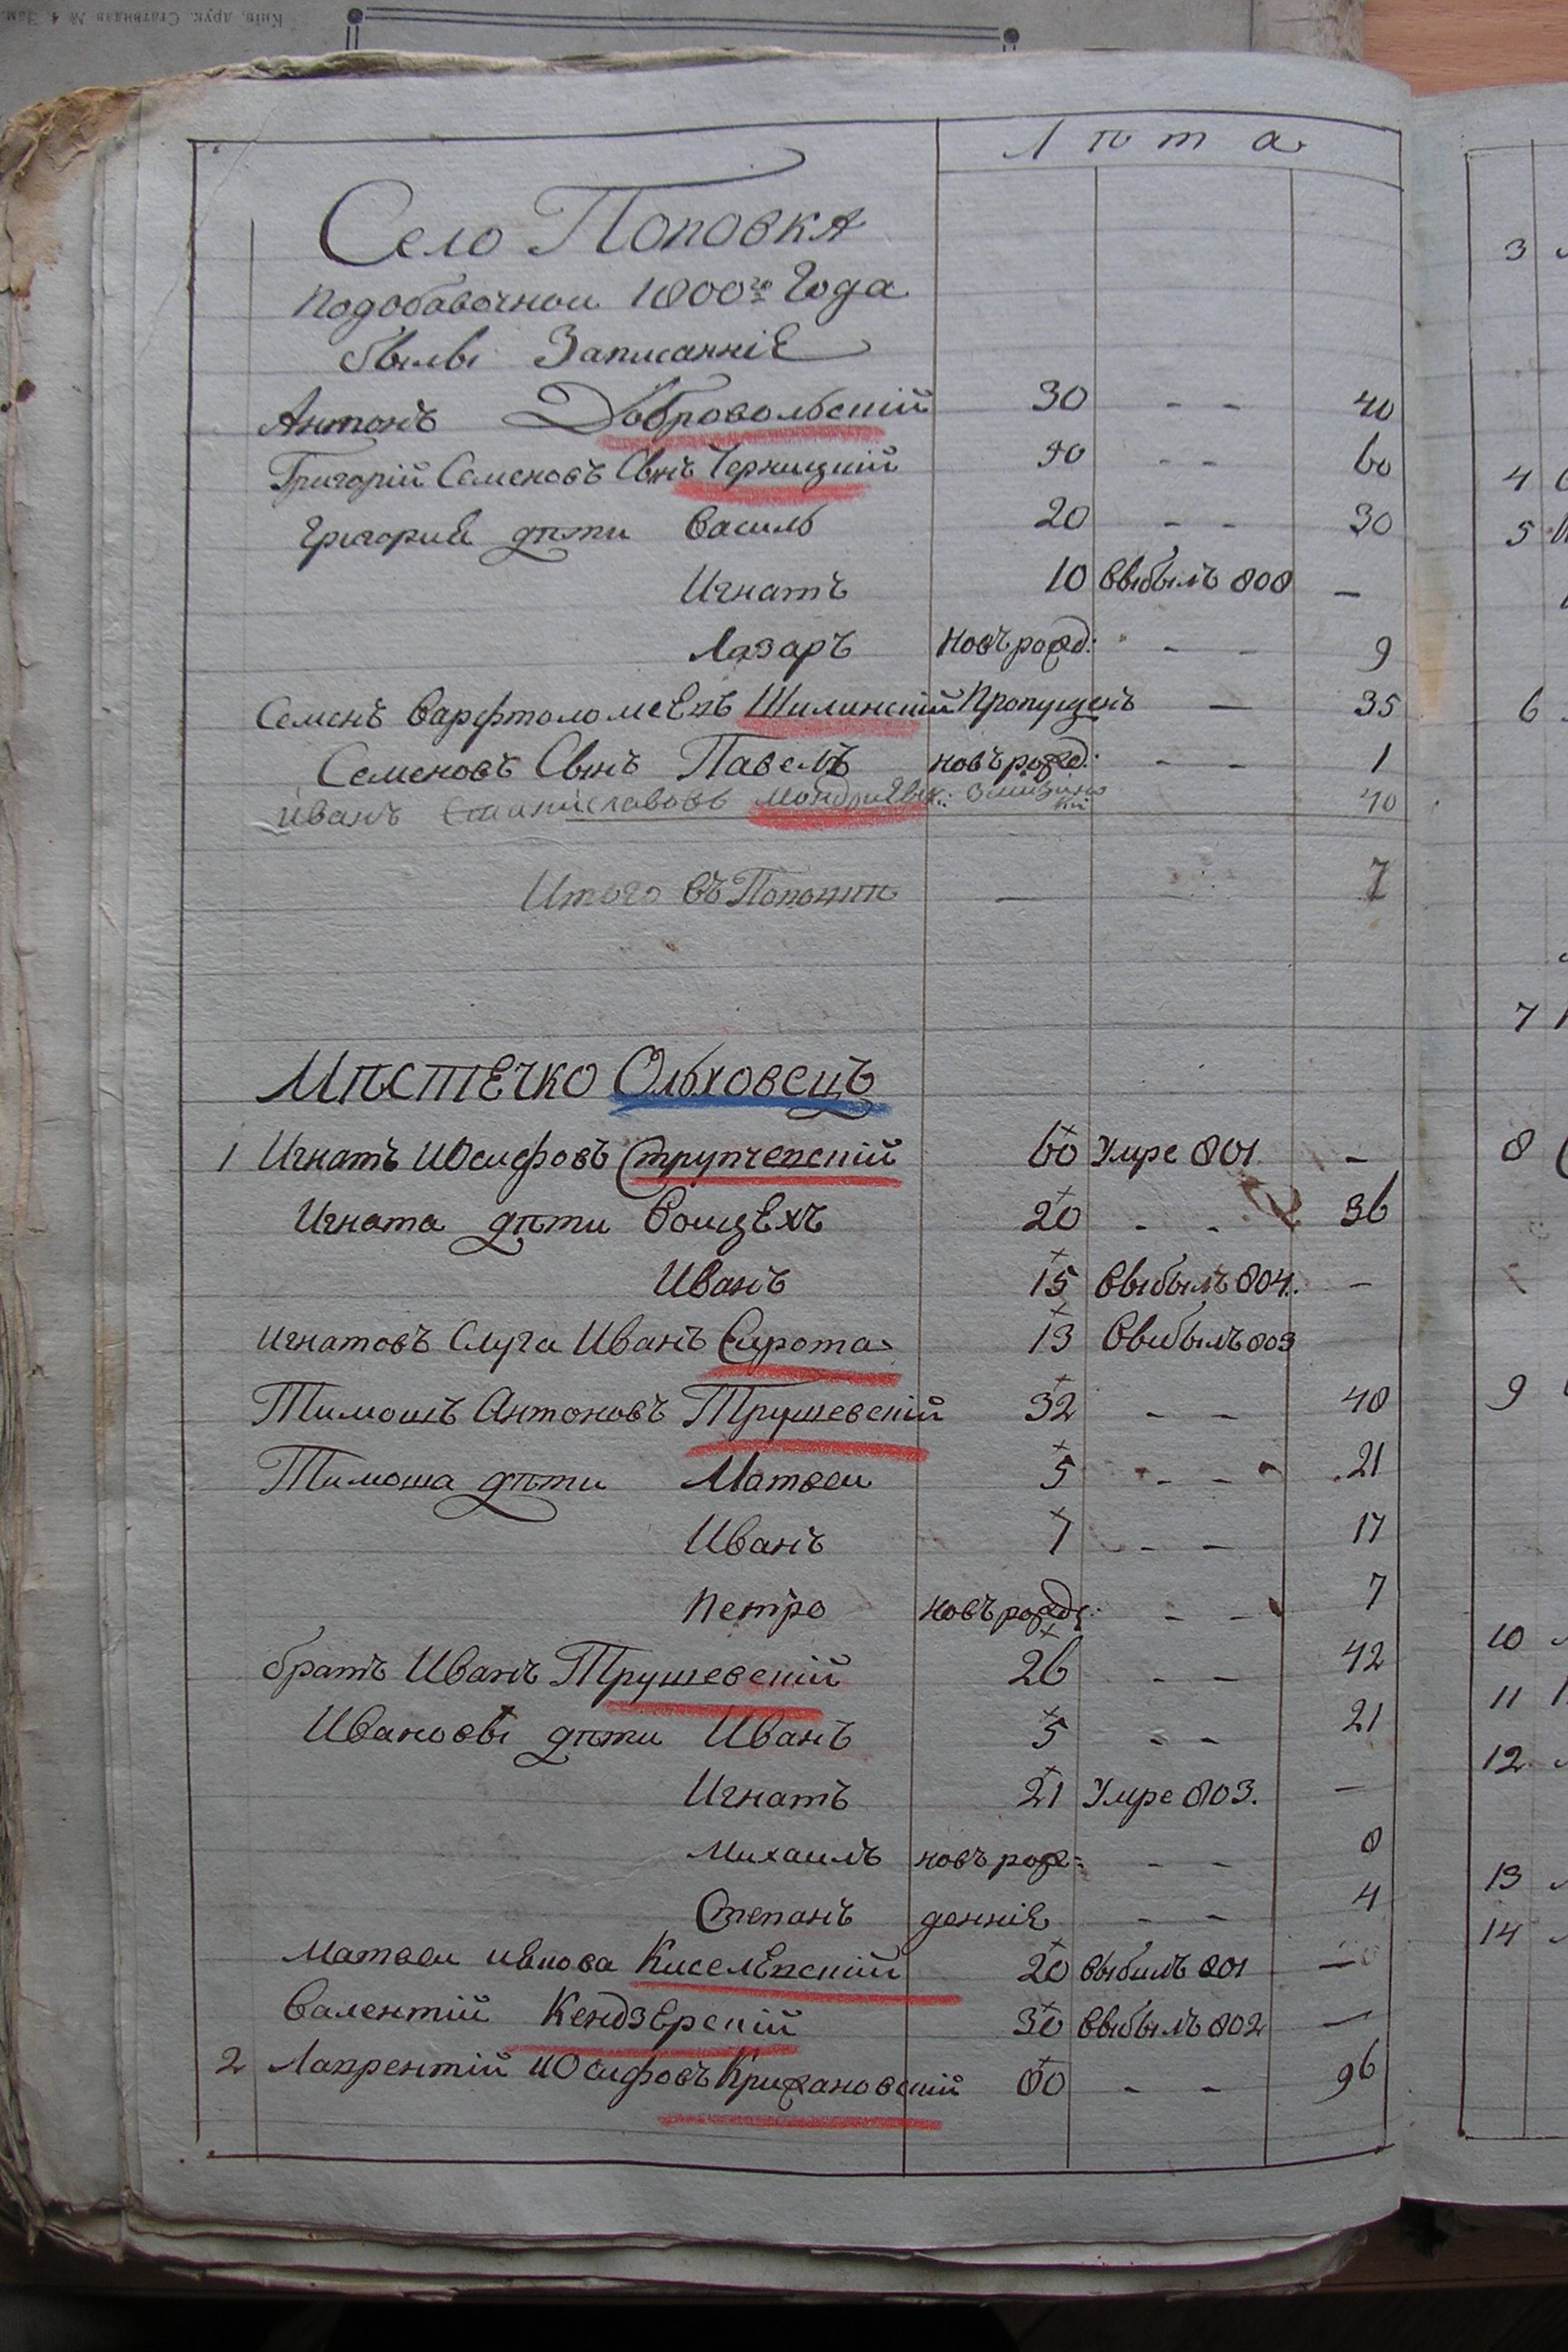 Лѣта
Село Поповка
Подобавочнои 1800го Года
бывы Записанніе
Антонъ Добровольскій 30 - - 40
Григорій Семеновъ Сынъ Черницкій 50 - - 60
Григория дѣти Василь 20 - - 30
Игнатъ 10 Выбылъ 808 —
Лазаръ новъ рожд: - - 9
Семенъ Варфтоломеевъ Шилинскій Пропущенъ — 35
Семеновъ Сынъ Павелъ новъ рожд: - - 1
Иванъ Станиславовъ 40
Итого въ Поповки — 7
Мѣстечко Ольховецъ
1 Игнатъ Юсифовъ Струтчевскій 60 Умре 801. —
Игната дѣти Воицехъ 20 - - 36
Иванъ 15 Выбылъ 804. —
Игнатовъ Слуга Иванъ Сирота 13 Выбылъ 803
Тимошъ Антоновъ Трушевскій 32 - - 48
Тимоша дѣти Матвеи 5 - - 21
Иванъ 1 - - 17
Петро новърожде: - - 7
братъ Иванъ Трушевскій 26 - - 42
Ивановы дѣти Иванъ 5 - - 21
Игнатъ 21 Умре 803. —
Михаилъ новъ рож= - - 8
Степанъ денніе - - 4
Матвеи Киселевскій 20 выбылъ 801 —
Валентій Кендзерскій 30 Выбылъ 802 —
2 Лаврентій Юсифовъ Крижановскій 80 - - 96
3
4
5
6
7
8
9
10
11
12
13
14